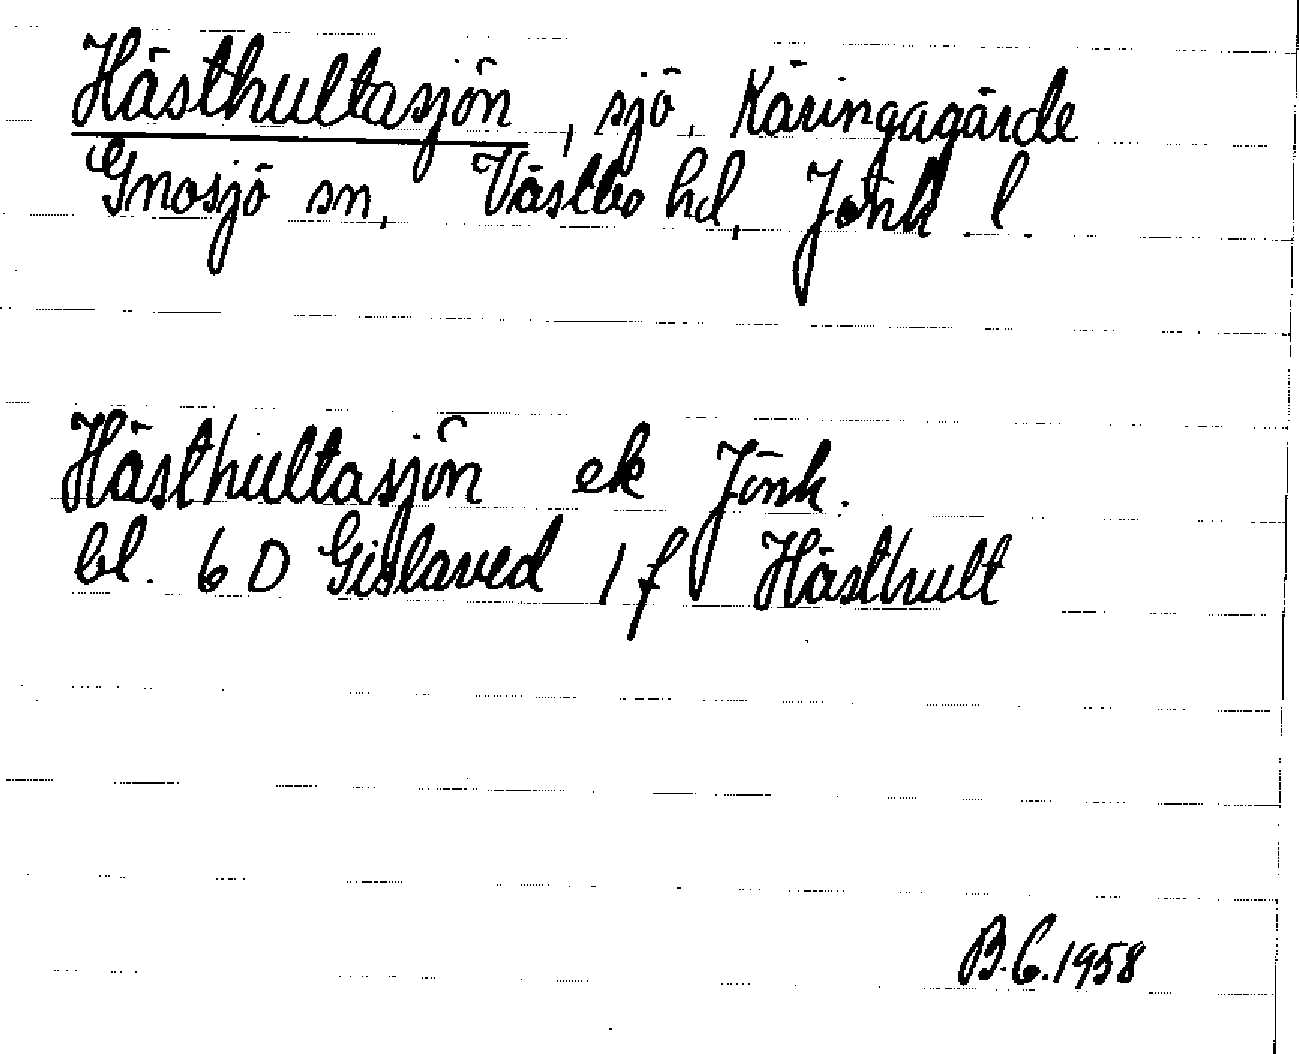 Hästhultasjön, sjö, Käringagärde
Gnosjö sn, Västbo hd, Jönk l.
Hästhultasjön ek Jönk.
bl. 6 D Gislaved 1 f Hästhult
B.C.1958